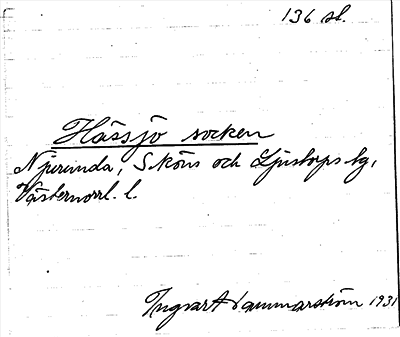 136 sl.
Hässjö socken
Njurunda, Sköns och Ljustorps tg,
Västernorrl. l.
Ingvart Hammarström 1931